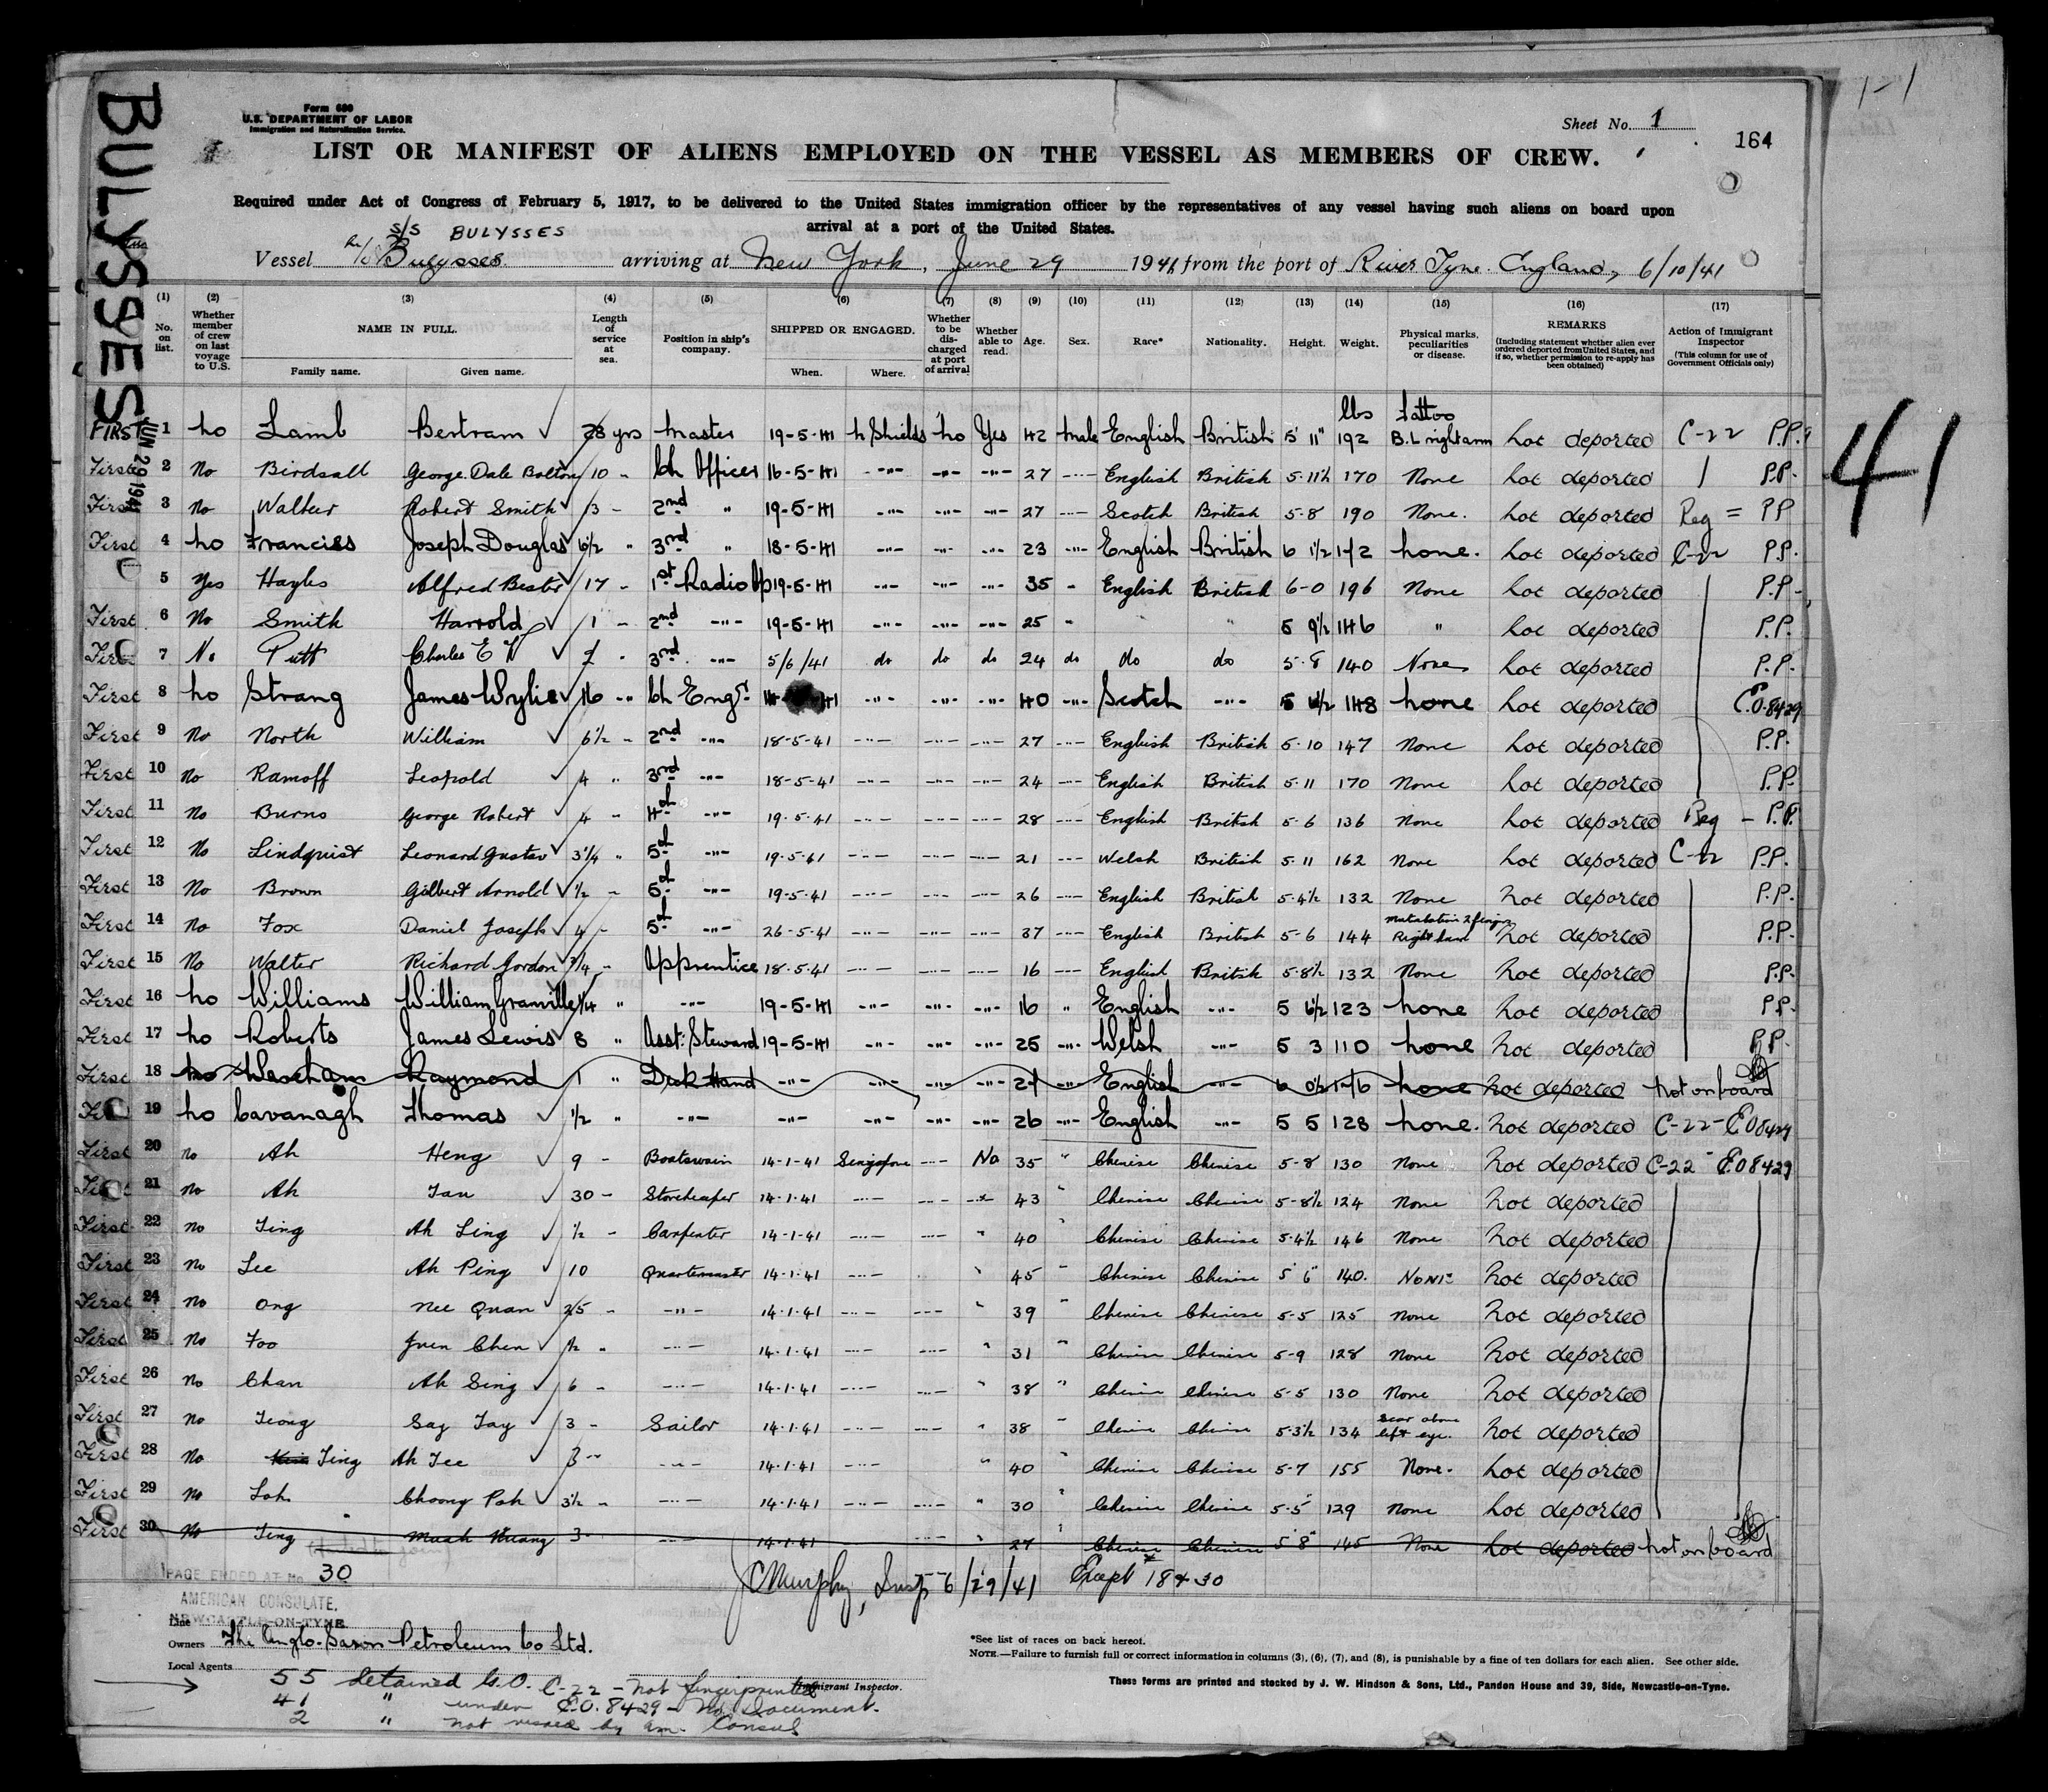 1-1
41
BULYSSES
JUN 29 1941
Form 680
U.S. DEPARTMENT OF LABOR
Immigration and Naturalization Service.
Sheet No. 1
164
LIST OR MANIFEST OF ALIENS EMPLOYED ON THE VESSEL AS MEMBERS OF CREW.
Required under Act of Congress of February 5, 1917, to be delivered to the United States immigration officer by the representatives of any vessel having such aliens on board upon
arrival at a port of the United States.
S/S BULYSSES
Vessel Bulysses arriving at New York, June 29 1941 from the port of River Tyne. England, 6/10/41
(1) (2) (3) (4) (5) (6) (7) (8) (9) (10) (11) (12) (13) (14) (15) (16) (17)
No. on list.
Whether member of crew on last voyage to U.S.
NAME IN FULL.
Family name. Given name.
Length of service at sea.
Position in ship's company.
SHIPPED OR ENGAGED.
When. Where.
Whether to be discharged at port of arrival
Whether able to read.
Age.
Sex.
Race*
Nationality.
Height.
Weight.
Physical marks, peculiarities or disease.
REMARKS
(Including statement whether alien ever ordered deported from United States, and if so, whether permission to re-apply has been obtained)
Action of Immigrant Inspector
(This column for use of Government Officials only)
lbs Tattoo
FIRST 1 No Lamb Bertram ✓ 28 yrs Master 19-5-41 N Shields No Yes 42 Male English British 5' 11" 192 B.L right arm Not deported C-22 P.P.
First 2 No Birdsall George Dale Bolton 10 - Ch Officer 16-5-41 -"- -"- -"- 27 -"- English British 5-11½ 170 None Not deported P.P.
First 3 No Walker Robert Smith ✓ 3 - 2nd " 19-5-41 -"- -"- -"- 27 -"- Scotch British 5-8 190 None. Not deported Reg = PP
First 4 No Francies Joseph Douglas ✓ 6½ " 3rd " 18-5-41 -"- -"- -"- 23 -"- English British 6 1½ None. Not deported C-22 P.P.
5 Yes Hayles Alfred Bester ✓ 17 - 1st Radio Op 19-5-41 -"- -"- -"- 35 - English British 6-0 196 None Not deported P.P.
First 6 No Smith Harrold ✓ 1 - 2nd -"- 19-5-41 -"- -"- -"- 25 " " 5 9½ 146 " Not deported P.P.
First 7 No Putt Charles E W ✓ 3rd -"- 5/6/41 do do do 24 do do do 5-8 140 None Not deported P.P.
First 8 No Strang James Wylie ✓ 16 -"- Ch Engr. 41 -"- -"- -"- 40 -"- Scotch -"- 5 148 None Not deported E.O.8429
First 9 No North William ✓ 6½ - 2nd -"- 18-5-41 -"- -"- -"- 27 -"- English British 5-10 147 None Not deported P.P.
First 10 No Ramoff Leopold ✓ 4 " 3rd -"- 18-5-41 -"- -"- -"- 24 -"- English British 5-11 170 None Not deported P.P.
First 11 No Burns George Robert ✓ 4 - 4th -"- 19-5-41 -"- -"- -"- 28 -"- English British 5-6 136 None Not deported Reg - P.P.
First 12 No Lindquist Leonard Gustav ✓ 3¼ " 5th -"- 19-5-41 -"- -"- -"- 21 -"- Welsh British 5-11 162 None Not deported C-22 P.P.
First 13 No Brown Gilbert Arnold ✓ ½ - 5th -"- 19-5-41 -"- -"- -"- 26 -"- English British 5-4½ 132 None Not deported P.P.
First 14 No Fox Daniel Joseph ✓ 4 - 5th -"- 26-5-41 -"- -"- -"- 37 -"- English British 5-6 144 Mutalation 2 fingers Right hand Not deported P.P.
First 15 No Walter Richard Gordon ✓ ¾ - Apprentice 18-5-41 -"- -"- -"- 16 -"- English British 5-8½ 132 None Not deported P.P.
First 16 No Williams William Granville ¼ " -"- 19-5-41 -"- -"- -"- 16 " English -"- 5 6½ 123 None Not deported P.P.
First 17 No Roberts James Lewis ✓ 8 " Asst: Steward 19-5-41 -"- -"- -"- 25 -"- Welsh -"- 5 3 110 None Not deported P.P.
First 18 No Raymond 1 " Deck Hand -"- -"- -"- -"- 21 -"- English -"- 6 0½ None Not deported Not on board
First 19 No Cavanagh Thomas ✓ ½ " -"- -"- -"- -"- -"- 26 -"- English -"- 5 5 128 None. Not deported C-22 - E.O 8429
First 20 No Ah Heng ✓ 9 - Boatswain 14-1-41 Singapore -"- No 35 " Chinise Chinise 5-8 130 None Not deported C-22 - E.O 8429
First 21 No Ah Tan ✓ 30 - Storekeeper 14-1-41 -"- -"- -"- 43 " Chinise Chinise 5-8½ 124 None Not deported
First 22 No Ting Ah Ling ✓ ½ - Carpenter 14-1-41 -"- -"- " 40 " Chinise Chinise 5-4½ 146 None Not deported
First 23 No Lee Ah Ping ✓ 10 Quartermaster 14-1-41 -"- " 45 " Chinise Chinise 5' 6" 140. NONE Not deported
First 24 No Ong Nee Quan ✓ 25 - -"- 14-1-41 -"- -"- " 39 " Chinise Chinise 5-5 125 None Not deported
First 25 No Foo Juen Chen ✓ ½ " -"- 14-1-41 -"- -"- " 31 " Chinise Chinise 5-9 128 None Not deported
First 26 No Chan Ah Sing ✓ 6 - -"- 14-1-41 -"- -"- " 38 " Chinise Chinise 5-5 130 None Not deported
First 27 No Teong Say Tay ✓ 3 - Sailor 14-1-41 -"- -"- " 38 " Chinise Chinise 5-3½ 134 Scar above left eye. Not deported
First 28 No Ting Ah Tee ✓ 3 -"- -"- 14-1-41 -"- " 40 Chinise Chinise 5-7 155 None. Not deported
First 29 No Loh Choong Poh ✓ 3½ - -"- 14-1-41 -"- -"- " 30 " Chinise Chinise 5-5 129 None Not deported
First 30 No Ting Muah Huang 3 - -"- 14-1-41 -"- " 27 " Chinise Chinise 5'8" 145 None Not deported Not on board
PAGE ENDED AT No 30
JC Murphy, Insp 6/29/41 Except # 18 & 30
AMERICAN CONSULATE,
NEWCASTLE-ON-TYNE
Line
Owners The Anglo-Saxon Petroleum Co Ltd.
Local Agents
Immigrant Inspector.
*See list of races on back hereof.
NOTE.—Failure to furnish full or correct information in columns (3), (6), (7), and (8), is punishable by a fine of ten dollars for each alien. See other side.
These forms are printed and stocked by J. W. Hindson & Sons, Ltd., Pandon House and 39, Side, Newcastle-on-Tyne.
55 detained G.O. C-22 - Not fingerprinted
41 " under E.O. 8429 - No Document.
2 " not visaed by Am. Consul